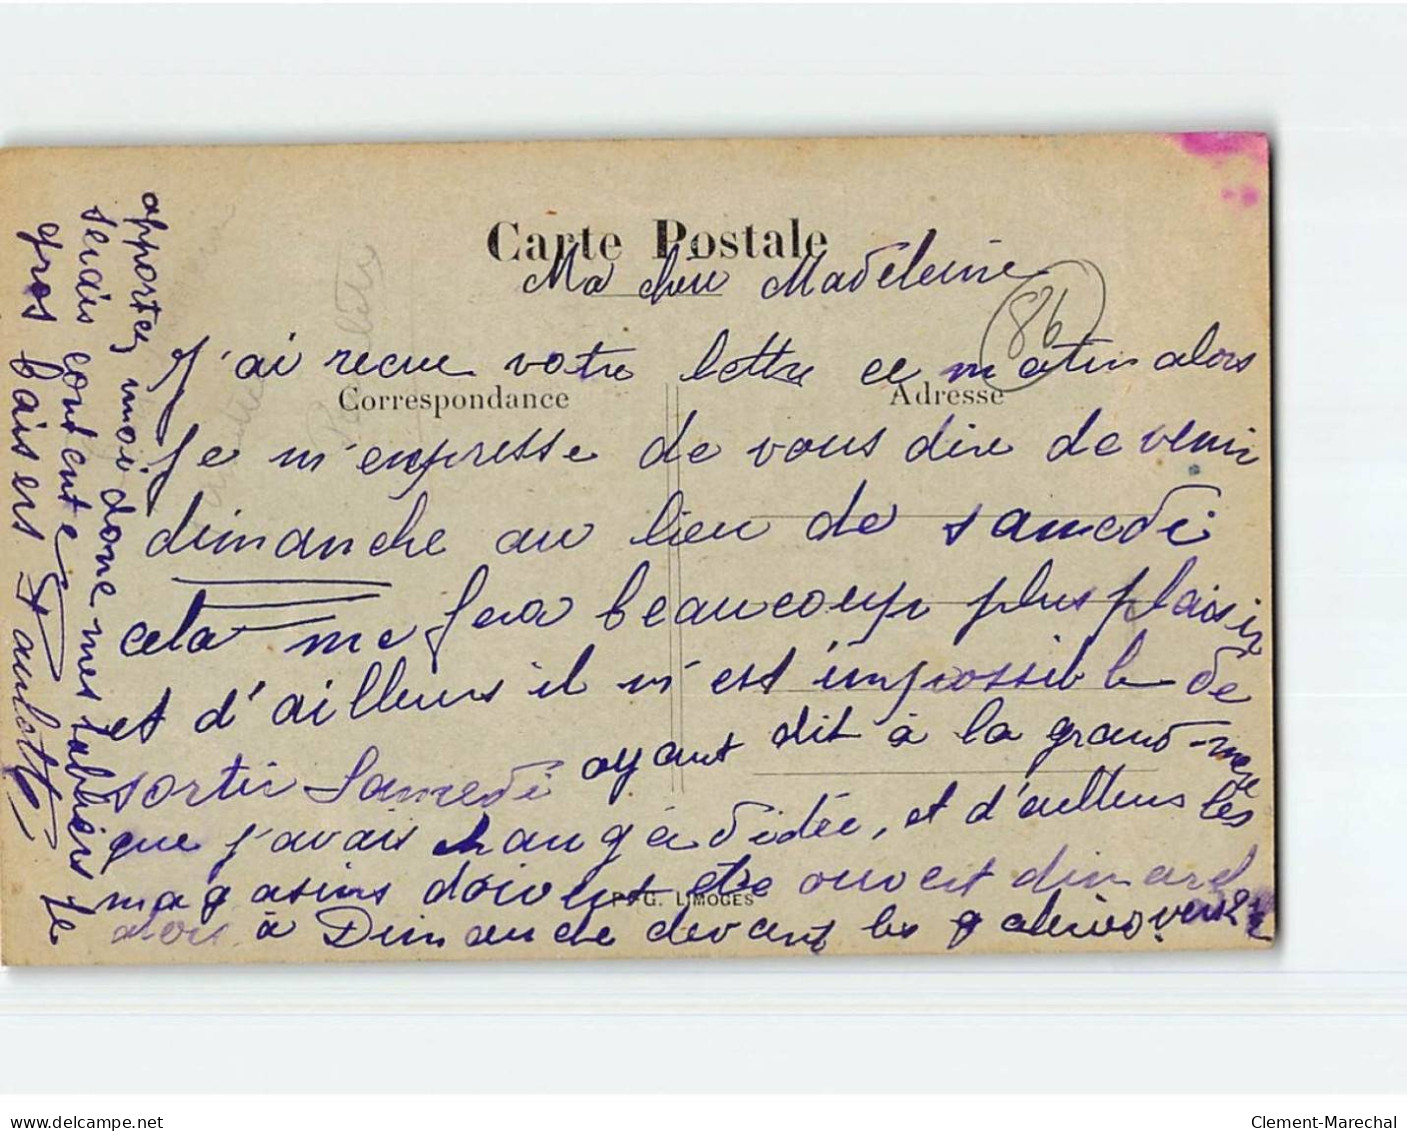 Carte Postale
Ma cher Madeleine
86
J'ai recue votre lettre ce matin alors
Correspondance
Adresse
Je m'empresse de vous dire de venir
dimanche au lieu de samedi
cela me fera beaucoup plus plaisir
et d'ailleurs il m'est impossible de
sortir Samedi ayant dit à la grand-mere
que j'avais changé d'idée, et d'ailleurs les
magasins doivent etre ouvert dimanch
P. G. LIMOGES
alors à Dimanche devant les galeries vers 2h
apportez moi donc mes tabliers je
serais contente
gros baisers Paulette
delcampe.net
Clement-Marechal